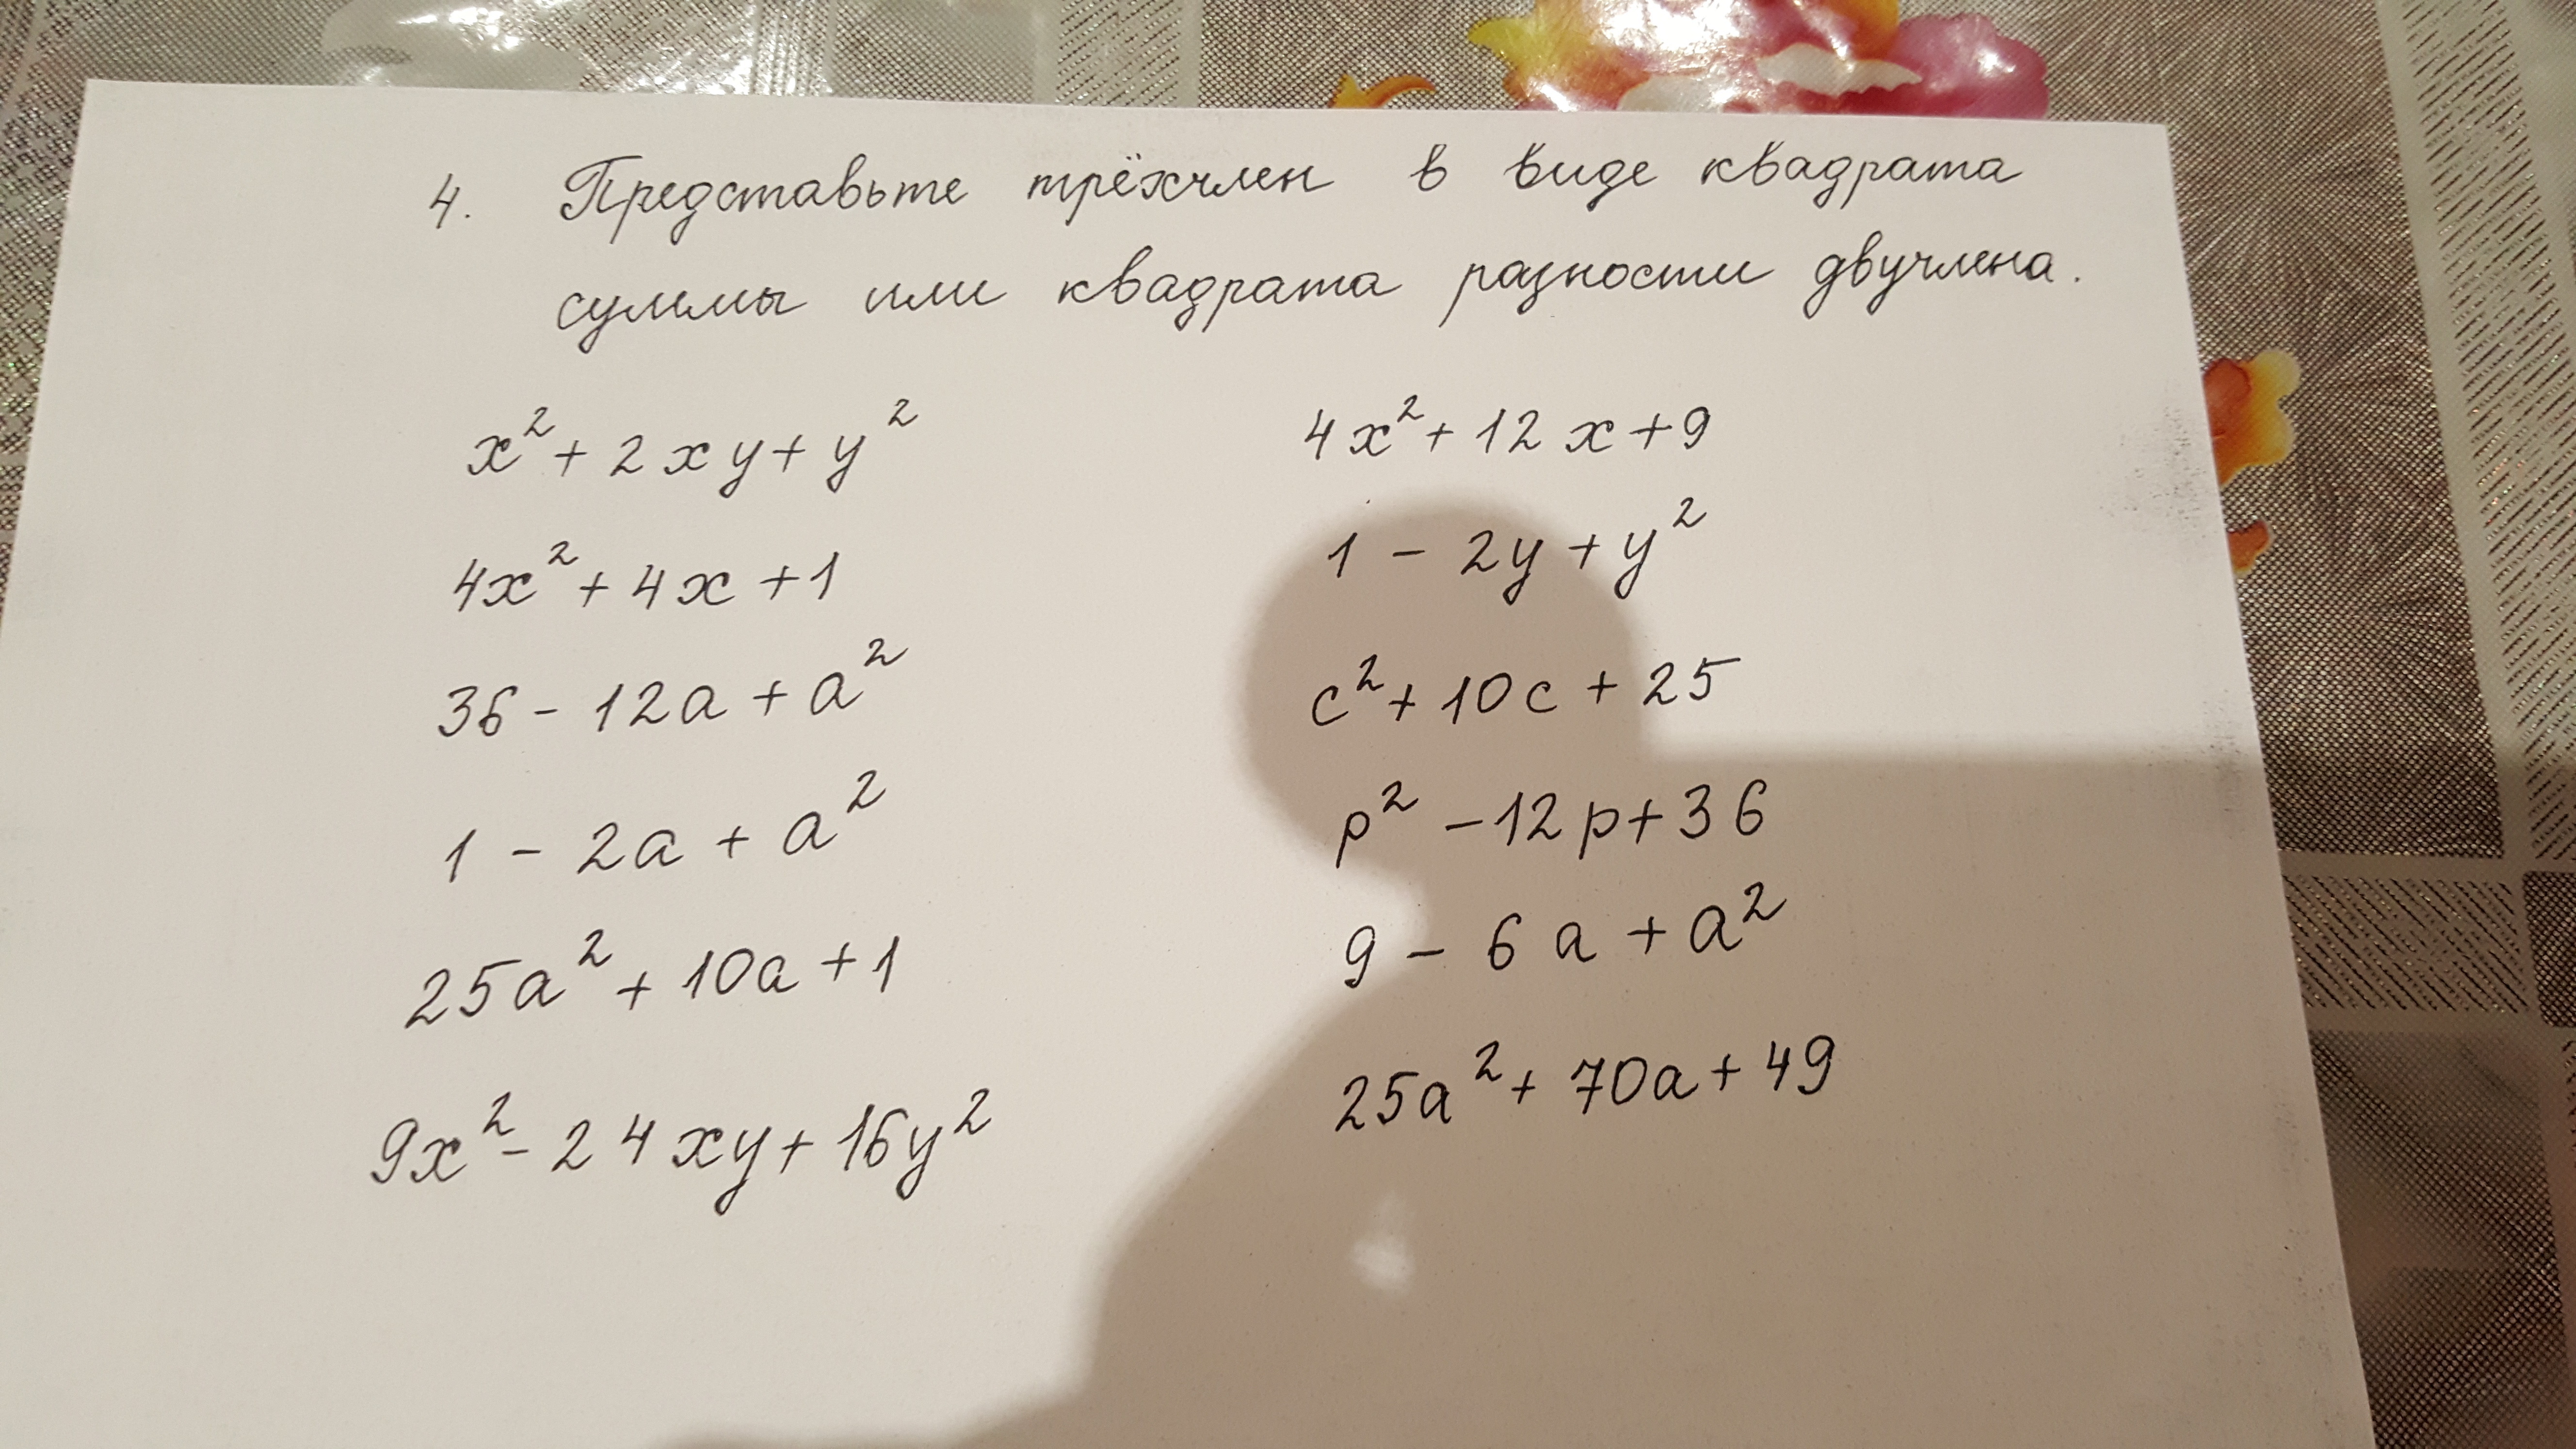 4. Представьте трёхчлен в виде квадрата
суммы или квадрата разности двучлена.
x² + 2xy + y²
4x² + 4x + 1
36 - 12a + a²
1 - 2a + a²
25a² + 10a + 1
9x² - 24xy + 16y²
4x² + 12x + 9
1 - 2y + y²
c² + 10c + 25
p² - 12p + 36
9 - 6a + a²
25a² + 70a + 49